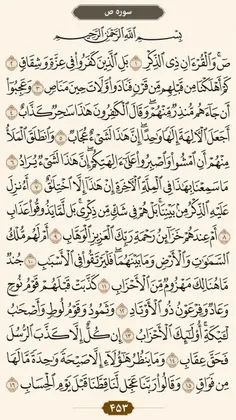 سوره ص
بِسْمِ اللَّهِ الرَّحْمَٰنِ الرَّحِيمِ
صٓ ۚ وَالْقُرْآنِ ذِي الذِّكْرِ ١ بَلِ الَّذِينَ كَفَرُوا فِي عِزَّةٍ وَشِقَاقٍ ٢
كَمْ أَهْلَكْنَا مِن قَبْلِهِم مِّن قَرْنٍ فَنَادَوا وَّلَاتَ حِينَ مَنَاصٍ ٣ وَعَجِبُوا
أَن جَاءَهُم مُّنذِرٌ مِّنْهُمْ ۖ وَقَالَ الْكَافِرُونَ هَٰذَا سَاحِرٌ كَذَّابٌ ٤
أَجَعَلَ الْآلِهَةَ إِلَٰهًا وَاحِدًا ۖ إِنَّ هَٰذَا لَشَيْءٌ عُجَابٌ ٥ وَانطَلَقَ الْمَلَأُ
مِنْهُمْ أَنِ امْشُوا وَاصْبِرُوا عَلَىٰ آلِهَتِكُمْ ۖ إِنَّ هَٰذَا لَشَيْءٌ يُرَادُ ٦
مَا سَمِعْنَا بِهَٰذَا فِي الْمِلَّةِ الْآخِرَةِ إِنْ هَٰذَا إِلَّا اخْتِلَاقٌ ٧ أَءُنزِلَ
عَلَيْهِ الذِّكْرُ مِن بَيْنِنَا ۚ بَلْ هُمْ فِي شَكٍّ مِّن ذِكْرِي ۖ بَل لَّمَّا يَذُوقُوا عَذَابِ
٨ أَمْ عِندَهُمْ خَزَائِنُ رَحْمَةِ رَبِّكَ الْعَزِيزِ الْوَهَّابِ ٩ أَمْ لَهُم مُّلْكُ
السَّمَاوَاتِ وَالْأَرْضِ وَمَا بَيْنَهُمَا ۖ فَلْيَرْتَقُوا فِي الْأَسْبَابِ ١٠ جُندٌ
مَّا هُنَالِكَ مَهْزُومٌ مِّنَ الْأَحْزَابِ ١١ كَذَّبَتْ قَبْلَهُمْ قَوْمُ نُوحٍ
وَعَادٌ وَفِرْعَوْنُ ذُو الْأَوْتَادِ ١٢ وَثَمُودُ وَقَوْمُ لُوطٍ وَأَصْحَابُ
لْـَٔيْكَةِ ۚ أُولَٰئِكَ الْأَحْزَابُ ١٣ إِن كُلٌّ إِلَّا كَذَّبَ الرُّسُلَ
فَحَقَّ عِقَابِ ١٤ وَمَا يَنظُرُ هَٰؤُلَاءِ إِلَّا صَيْحَةً وَاحِدَةً مَّا لَهَا
مِن فَوَاقٍ ١٥ وَقَالُوا رَبَّنَا عَجِّل لَّنَا قِطَّنَا قَبْلَ يَوْمِ الْحِسَابِ ١٦
۴۵۳